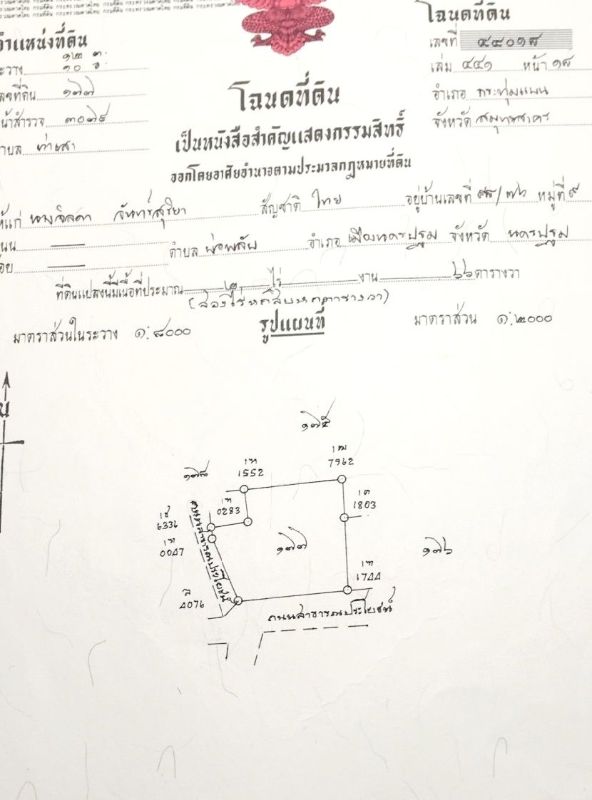 โฉนดที่ดิน
ตำแหน่งที่ดิน
เลขที่ ๔๘๐๑๘
ระวาง
เล่ม ๔๔๑ หน้า ๑๘
เลขที่ดิน ๑๗๗
โฉนดที่ดิน
อำเภอ กระทุ่มแบน
หน้าสำรวจ
จังหวัด สมุทรสาคร
ตำบล ท่าเสา
เป็นหนังสือสำคัญแสดงกรรมสิทธิ์
ออกโดยอาศัยอำนาจตามประมวลกฎหมายที่ดิน
ให้แก่ จันทร์สุริยา สัญชาติ ไทย อยู่บ้านเลขที่ หมู่ที่ ๙
ถนน — ตำบล บ่อพลับ อำเภอ เมืองนครปฐม จังหวัด นครปฐม
ซอย —
ที่ดินแปลงนี้มีเนื้อที่ประมาณ ๒ ไร่ — งาน ๖๖ ตารางวา
(สองไร่หกสิบหกตารางวา)
มาตราส่วนในระวาง ๑:๘๐๐๐ รูปแผนที่ มาตราส่วน ๑:๒๐๐๐
น
๑๗๕
7962
1552
0283
1803
6336
0047
๑๗๗
๑๗๖
1744
4076
ถนนสาธารณประโยชน์
ถนนสาธารณประโยชน์